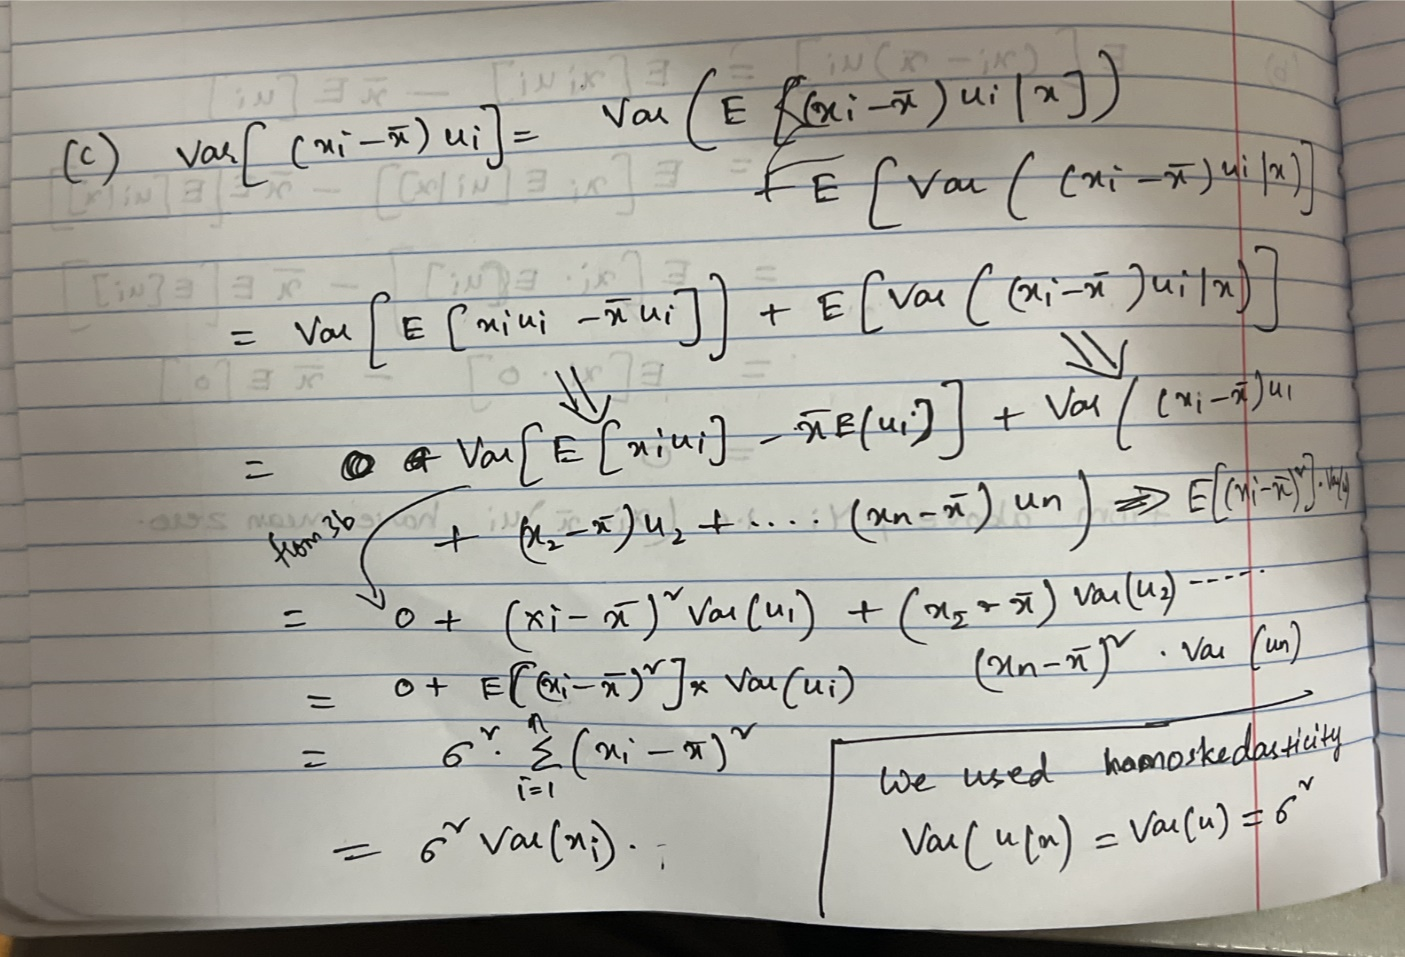 (c) Var[(xi − x̄) ui] = Var(E[(xi − x̄) ui | x])
+ E[Var((xi − x̄) ui | x)]
= Var[E[xiui − x̄ui]] + E[Var((xi − x̄) ui | x)]
= Var[E[xiui] − x̄E(ui)] + Var((xi − x̄)u1
from 3b + (x2 − x̄)u2 + .... (xn − x̄) un) ⇒ E[(xi − x̄)²].Var(u)
= 0 + (xi − x̄)² Var(u1) + (x2 − x̄) Var(u2) -----
(xn − x̄)² . Var (un)
= 0 + E[(xi − x̄)²] x Var(ui)
= σ². Σ(xi − x̄)²
n
i=1
= σ² Var(xi).
We used hamoskedasticity
Var(u|x) = Var(u) = σ²